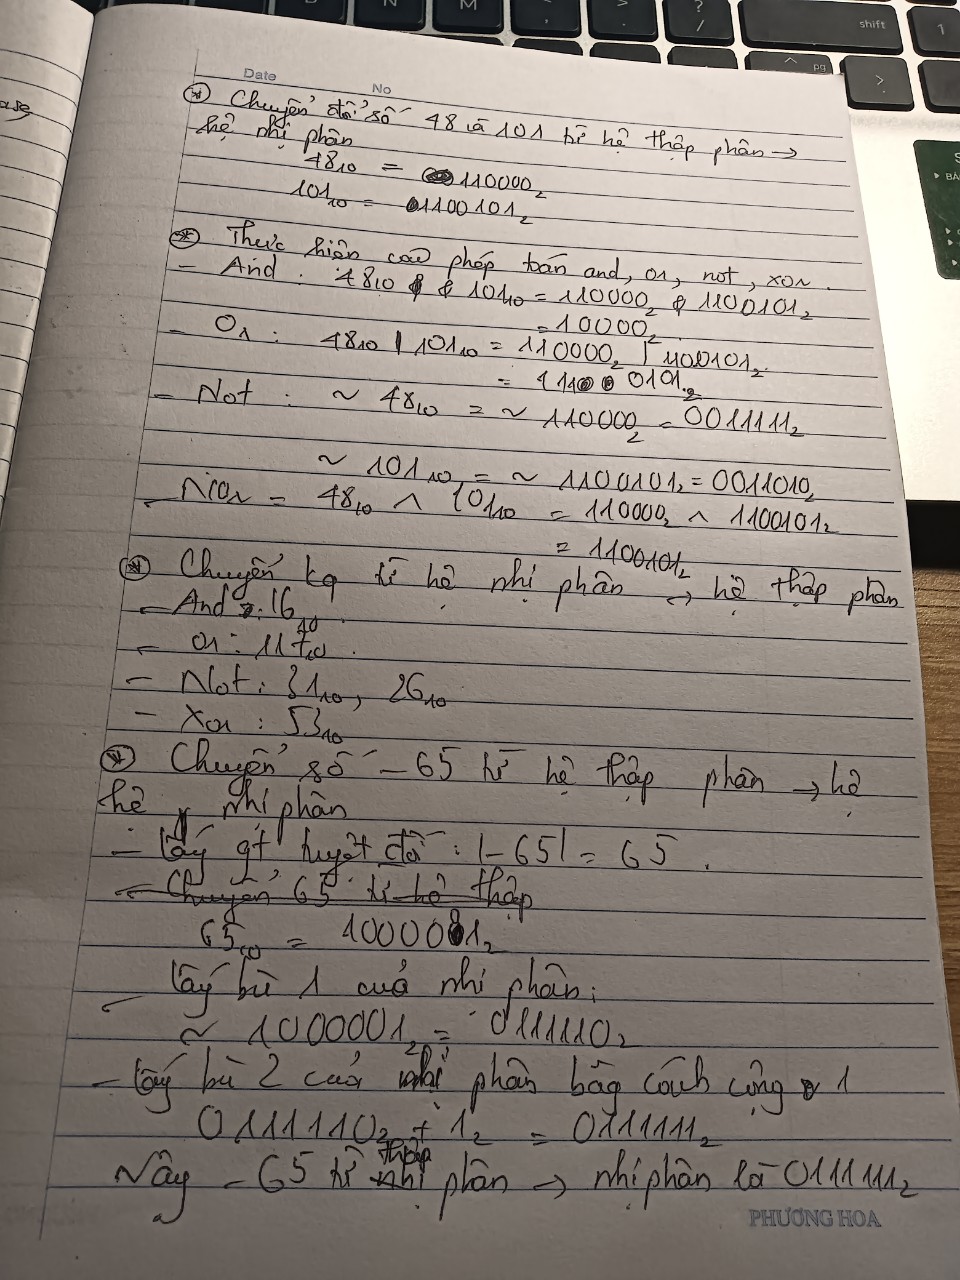 Date No
Chuyển đổi số 48 và 101 từ hệ thập phân →
hệ nhị phân
48₁₀ = 110000₂
101₁₀ = 1100101₂
Thực hiện các phép toán and, or, not, xor.
- And : 48₁₀ & 101₁₀ = 110000₂ & 1100101₂
= 10000₂
- Or : 48₁₀ | 101₁₀ = 110000₂ | 1100101₂
= 1110101₂
- Not : ~ 48₁₀ = ~ 110000₂ = 0011111₂
~ 101₁₀ = ~ 1100101₂ = 0011010₂
- Xor = 48₁₀ ^ 101₁₀ = 110000₂ ^ 1100101₂
= 1100101₂
Chuyển kq từ hệ nhị phân → hệ thập phân
- And : 16₁₀.
- or : 117₁₀.
- Not : 31₁₀, 26₁₀
- Xor : 53₁₀
Chuyển số -65 từ hệ thập phân → hệ
hệ nhị phân
- Lấy gt tuyệt đối : |-65| = 65.
- Chuyển 65 từ hệ thập
65₁₀ = 1000001₂
- Lấy bù 1 của nhị phân:
~ 1000001₂ = 0111110₂
- Lấy bù 2 của nhị phân bằg cách cộng 1
0111110₂ + 1₂ = 0111111₂
Vậy -65 từ thập phân → nhị phân là 0111111₂
PHƯƠNG HOA
shift
pg
N
M
?
/
>
.
1